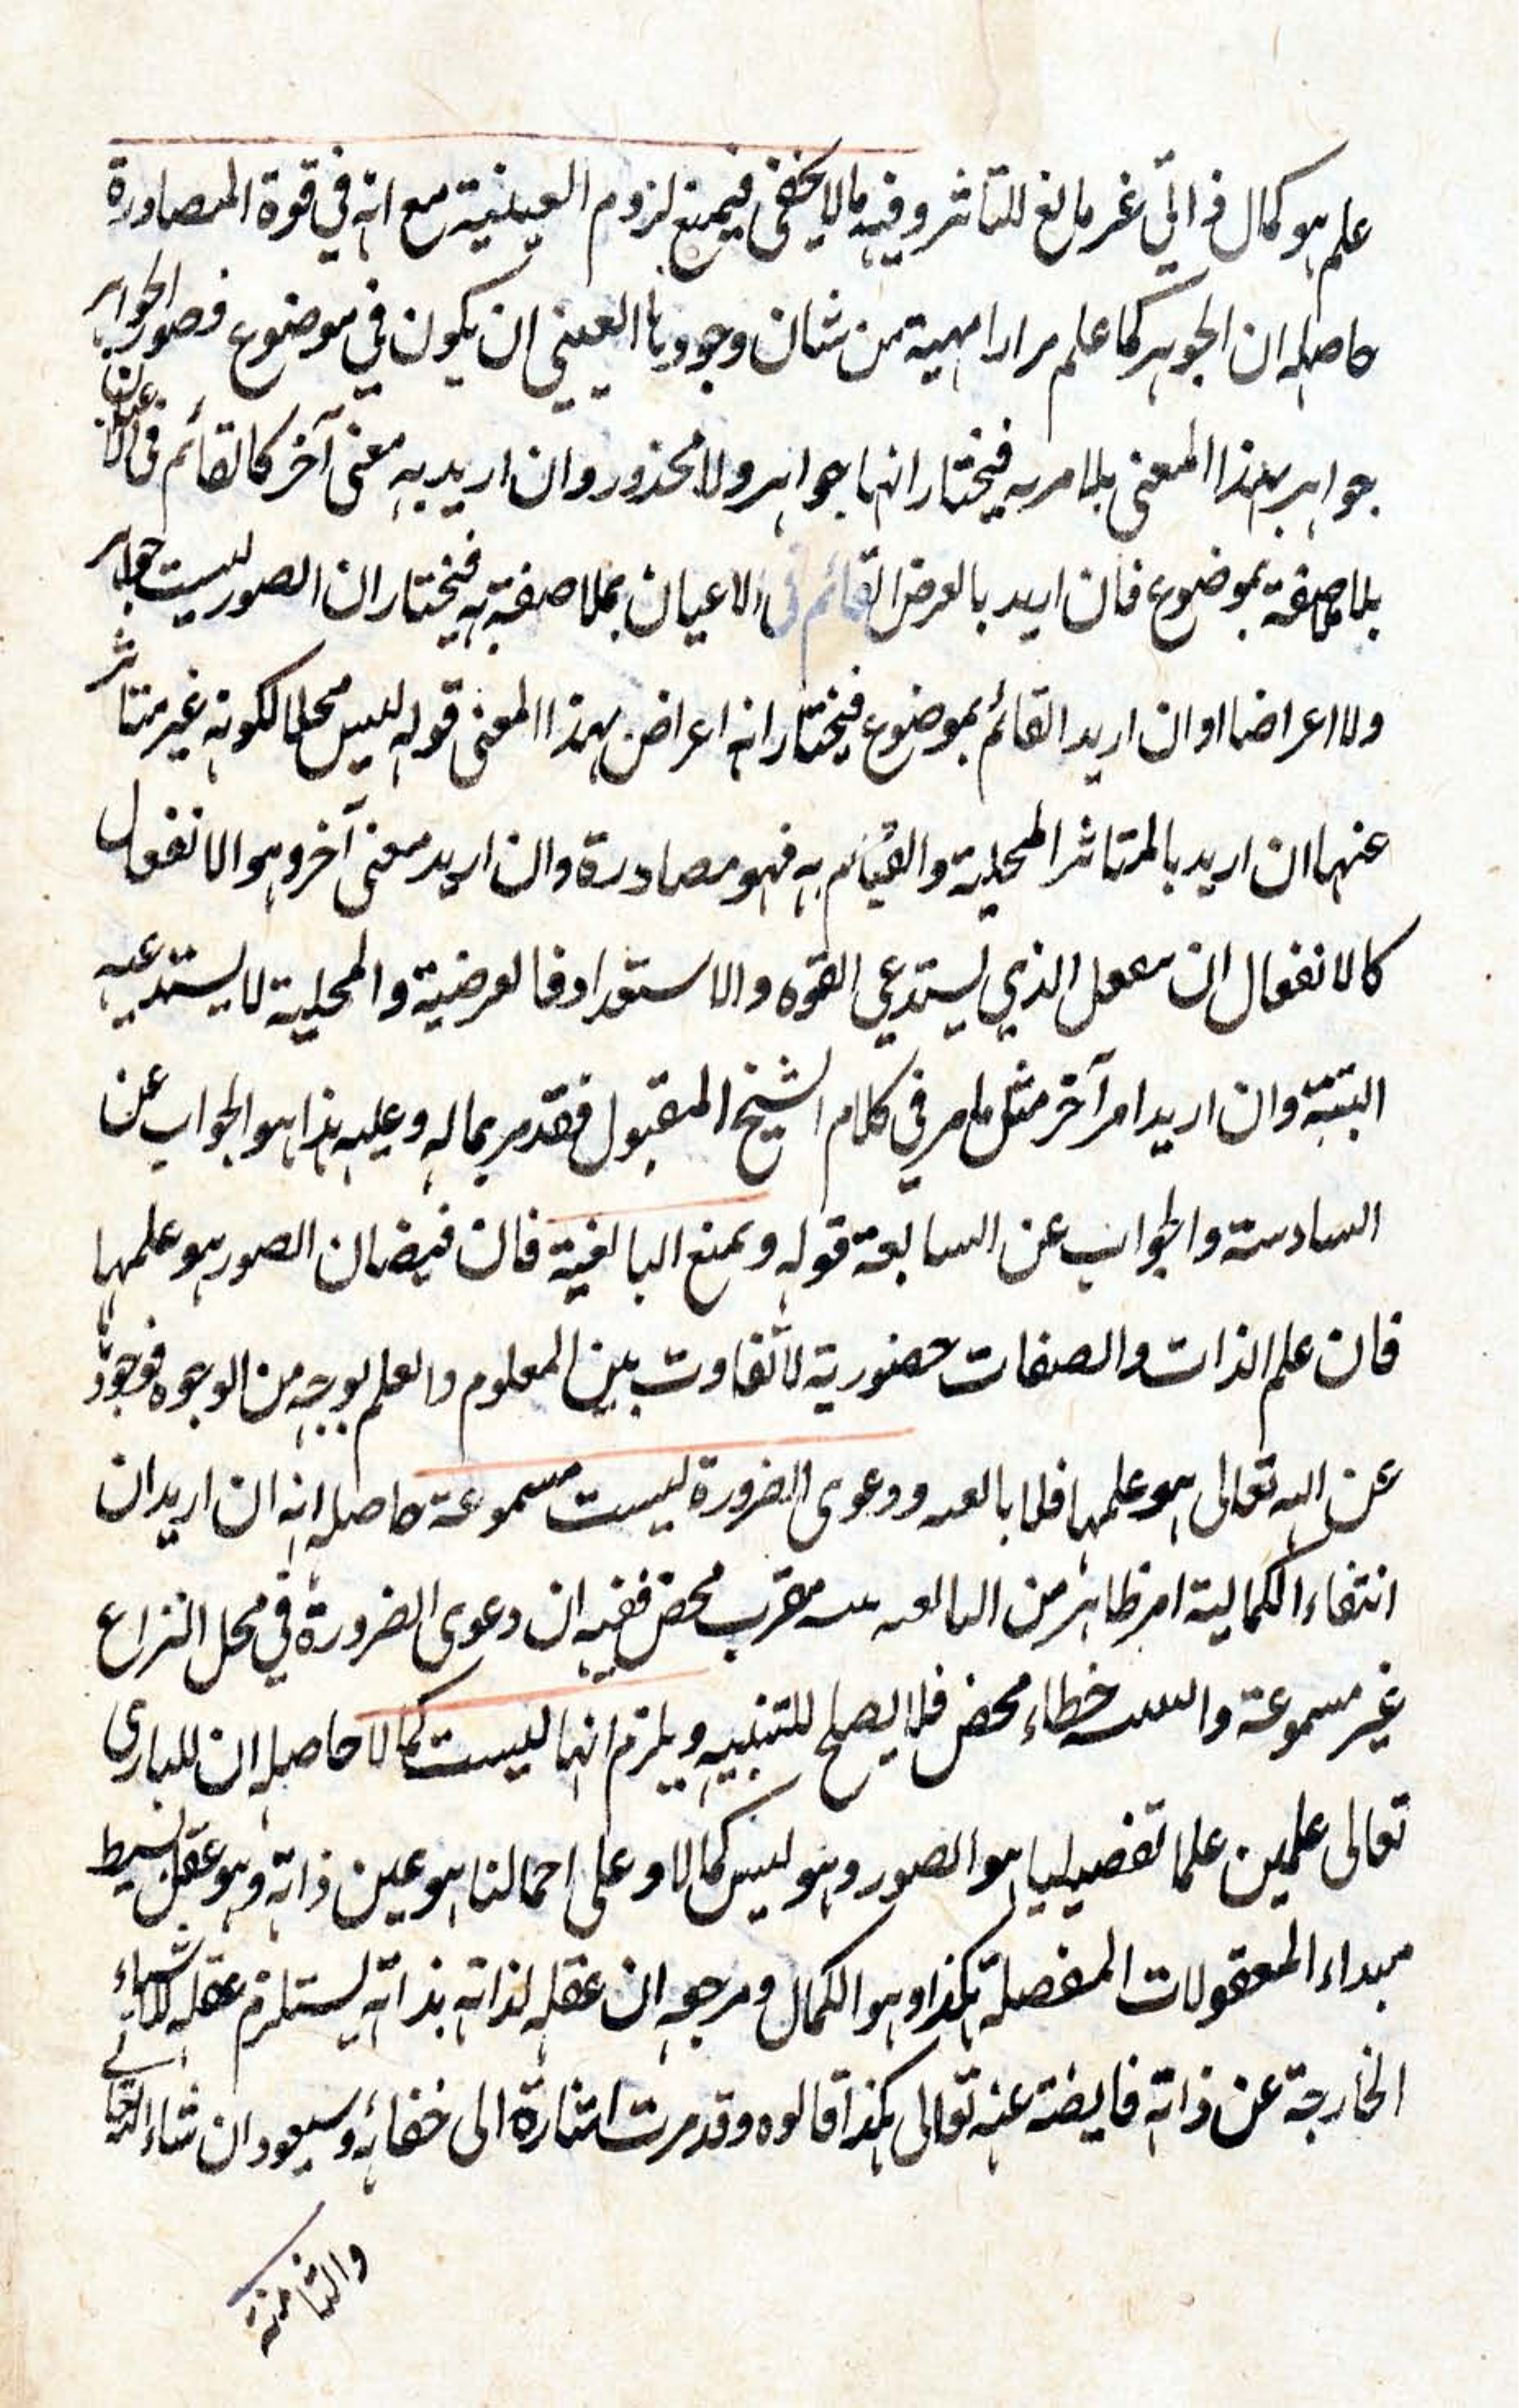 علم هو كمال ذاتي غير مانع للتاثر وفيه ما لا يخفى فيمنع لزوم العينية مع انه في قوة المصادرة
حاصله ان الجوهر كما علم مرارا مهية من شان وجودها العيني ان يكون في موضوع فصور الجواهر
جواهر بهذا المعنى بلا مريه فيختار انها جواهر ولا محذور وان اريد به معنى آخر كالقائم في الاعيان
بلا موضوع فان اريد بالعرض القائم في الاعيان بملاصقته به فيختار ان الصور ليست جواهر
ولا اعراضا او ان اريد القائم بموضوع فيختار انه اعراض بهذا المعنى قوله ليس محلا لكونه غير متاثر
عنها ان اريد بالمتاثر المحلية والقيام به فهو مصادرة وان اريد معنى آخر وهو الانفعال
كالانفعال ان الذي يستدعي القوه والاستعداد فالعرضية والمحلية لا يستدعيه
البتة وان اريد امر آخر مثل ما مر في كلام الشيخ المقبول فقد مر بماله وعليه هذا هو الجواب عن
السادسة والجواب عن السابعة قوله ويمنع البالغية فان فيضان الصور هو علمها
فان علم الذات والصفات حضورية لا تفاوت بين المعلوم والعلم بوجه من الوجوه فوجودها
عن اله تعالى هو علمها فلا ودعوى الضرورة ليست مسموعة حاصله انه ان اريد ان
انتفاء الكمالية امر ظاهر من محض ففيه ان دعوى الضرورة في محل النزاع
غير مسموعة خطاء محض فلا يصلح للتنبيه ويلزم انها ليست كمالا حاصله ان للباري
تعالى علمين علما تفصيليا هو الصور وهو ليس كمالا وعلى اجمالنا هو عين ذاته وهو عقل بسيط
مبداء المعقولات المفصلة هكذا وهو الكمال ومرجعه ان عقله لذاته بذاته يستلزم عقله للاشياء
الخارجة عن ذاته فايضة عنه تعالى هكذا قالوه وقد مرت اشارة الى خفائه وسيعود ان شاء الله تعالى
والثامنة